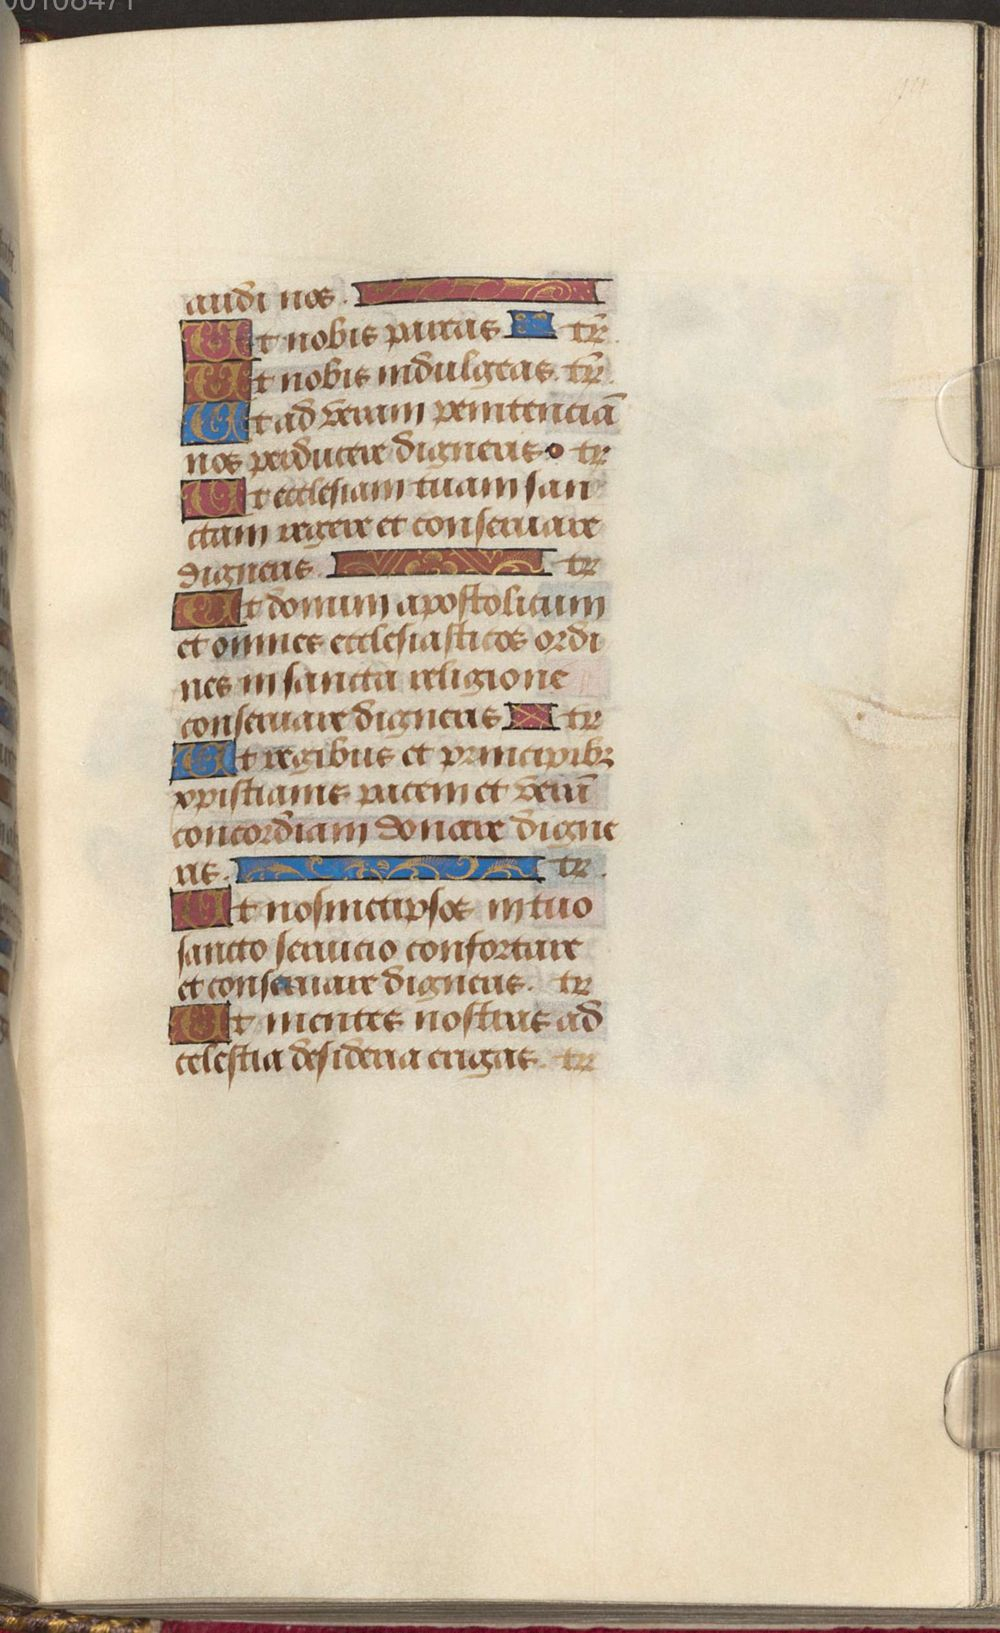 00108471
audi nos.
Ut nobis parcas tr̃.
Ut nobis indulgeas. tr̃.
Ut ad veram penitenciã
nos perducere digneris. tr̃
Ut ecclesiam tuam san
ctam regere et conseruare
digneris. tr̃
Ut domum apostolicum
et omnes ecclesiasticos ordi
nes in sancta religione
conseruare digneris tr̃
Ut regibus et principibꝫ
xpistianis pacem et verã
concordiam donare digne
ris. tr̃.
Ut nosmetipsos in tuo
sancto seruicio confortare
et conseruare digneris. tr̃
Ut mentes nostras ad
celestia desideria erigas. tr̃